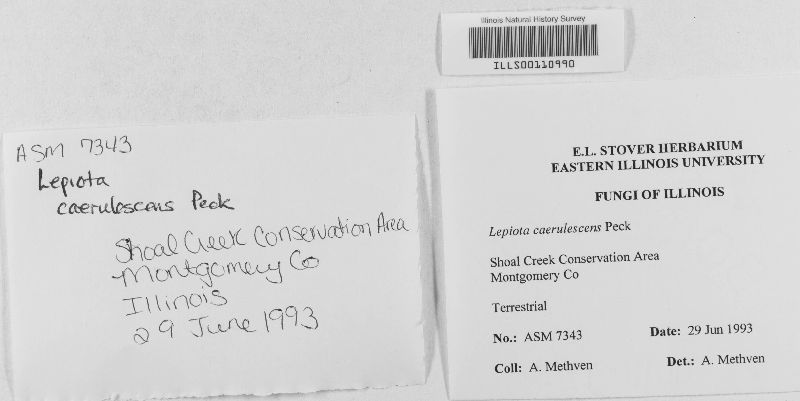 Illinois Natural History Survey
ILLS00110990
ASM 7343
Lepiota
caerulescens Peck
Shoal Creek Conservation Area
Montgomery Co
Illinois
29 June 1993
E.L. STOVER HERBARIUM
EASTERN ILLINOIS UNIVERSITY
FUNGI OF ILLINOIS
Lepiota caerulescens Peck
Shoal Creek Conservation Area
Montgomery Co
Terrestrial
No.: ASM 7343 Date: 29 Jun 1993
Coll: A. Methven Det.: A. Methven